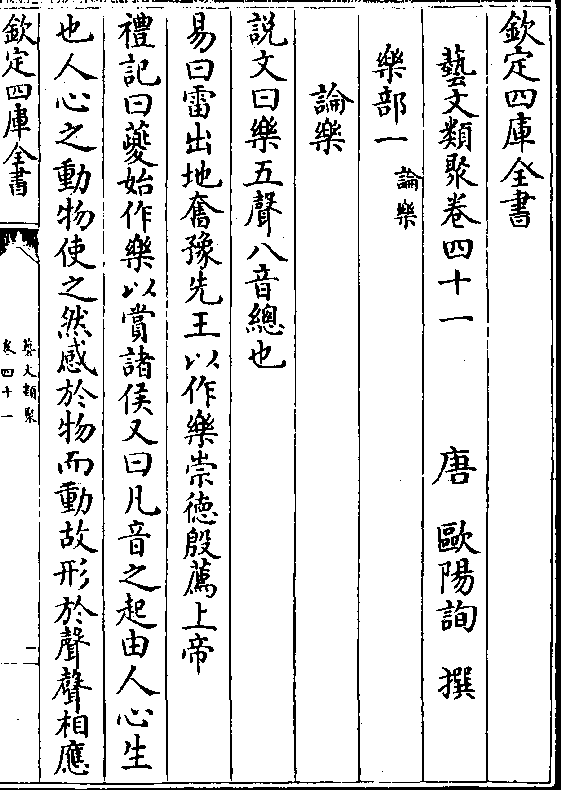 欽定四庫全書
藝文類聚卷四十一 唐 歐陽詢 撰
樂部一 論樂
論樂
説文曰樂五聲八音總也
易曰雷出地奮豫先王以作樂崇德殷薦上帝
禮記曰夔始作樂以賞諸侯又曰凡音之起由人心生
也人心之動物使之然感於物而動故形於聲聲相應
欽定四庫全書
藝文類聚
卷四十一
一